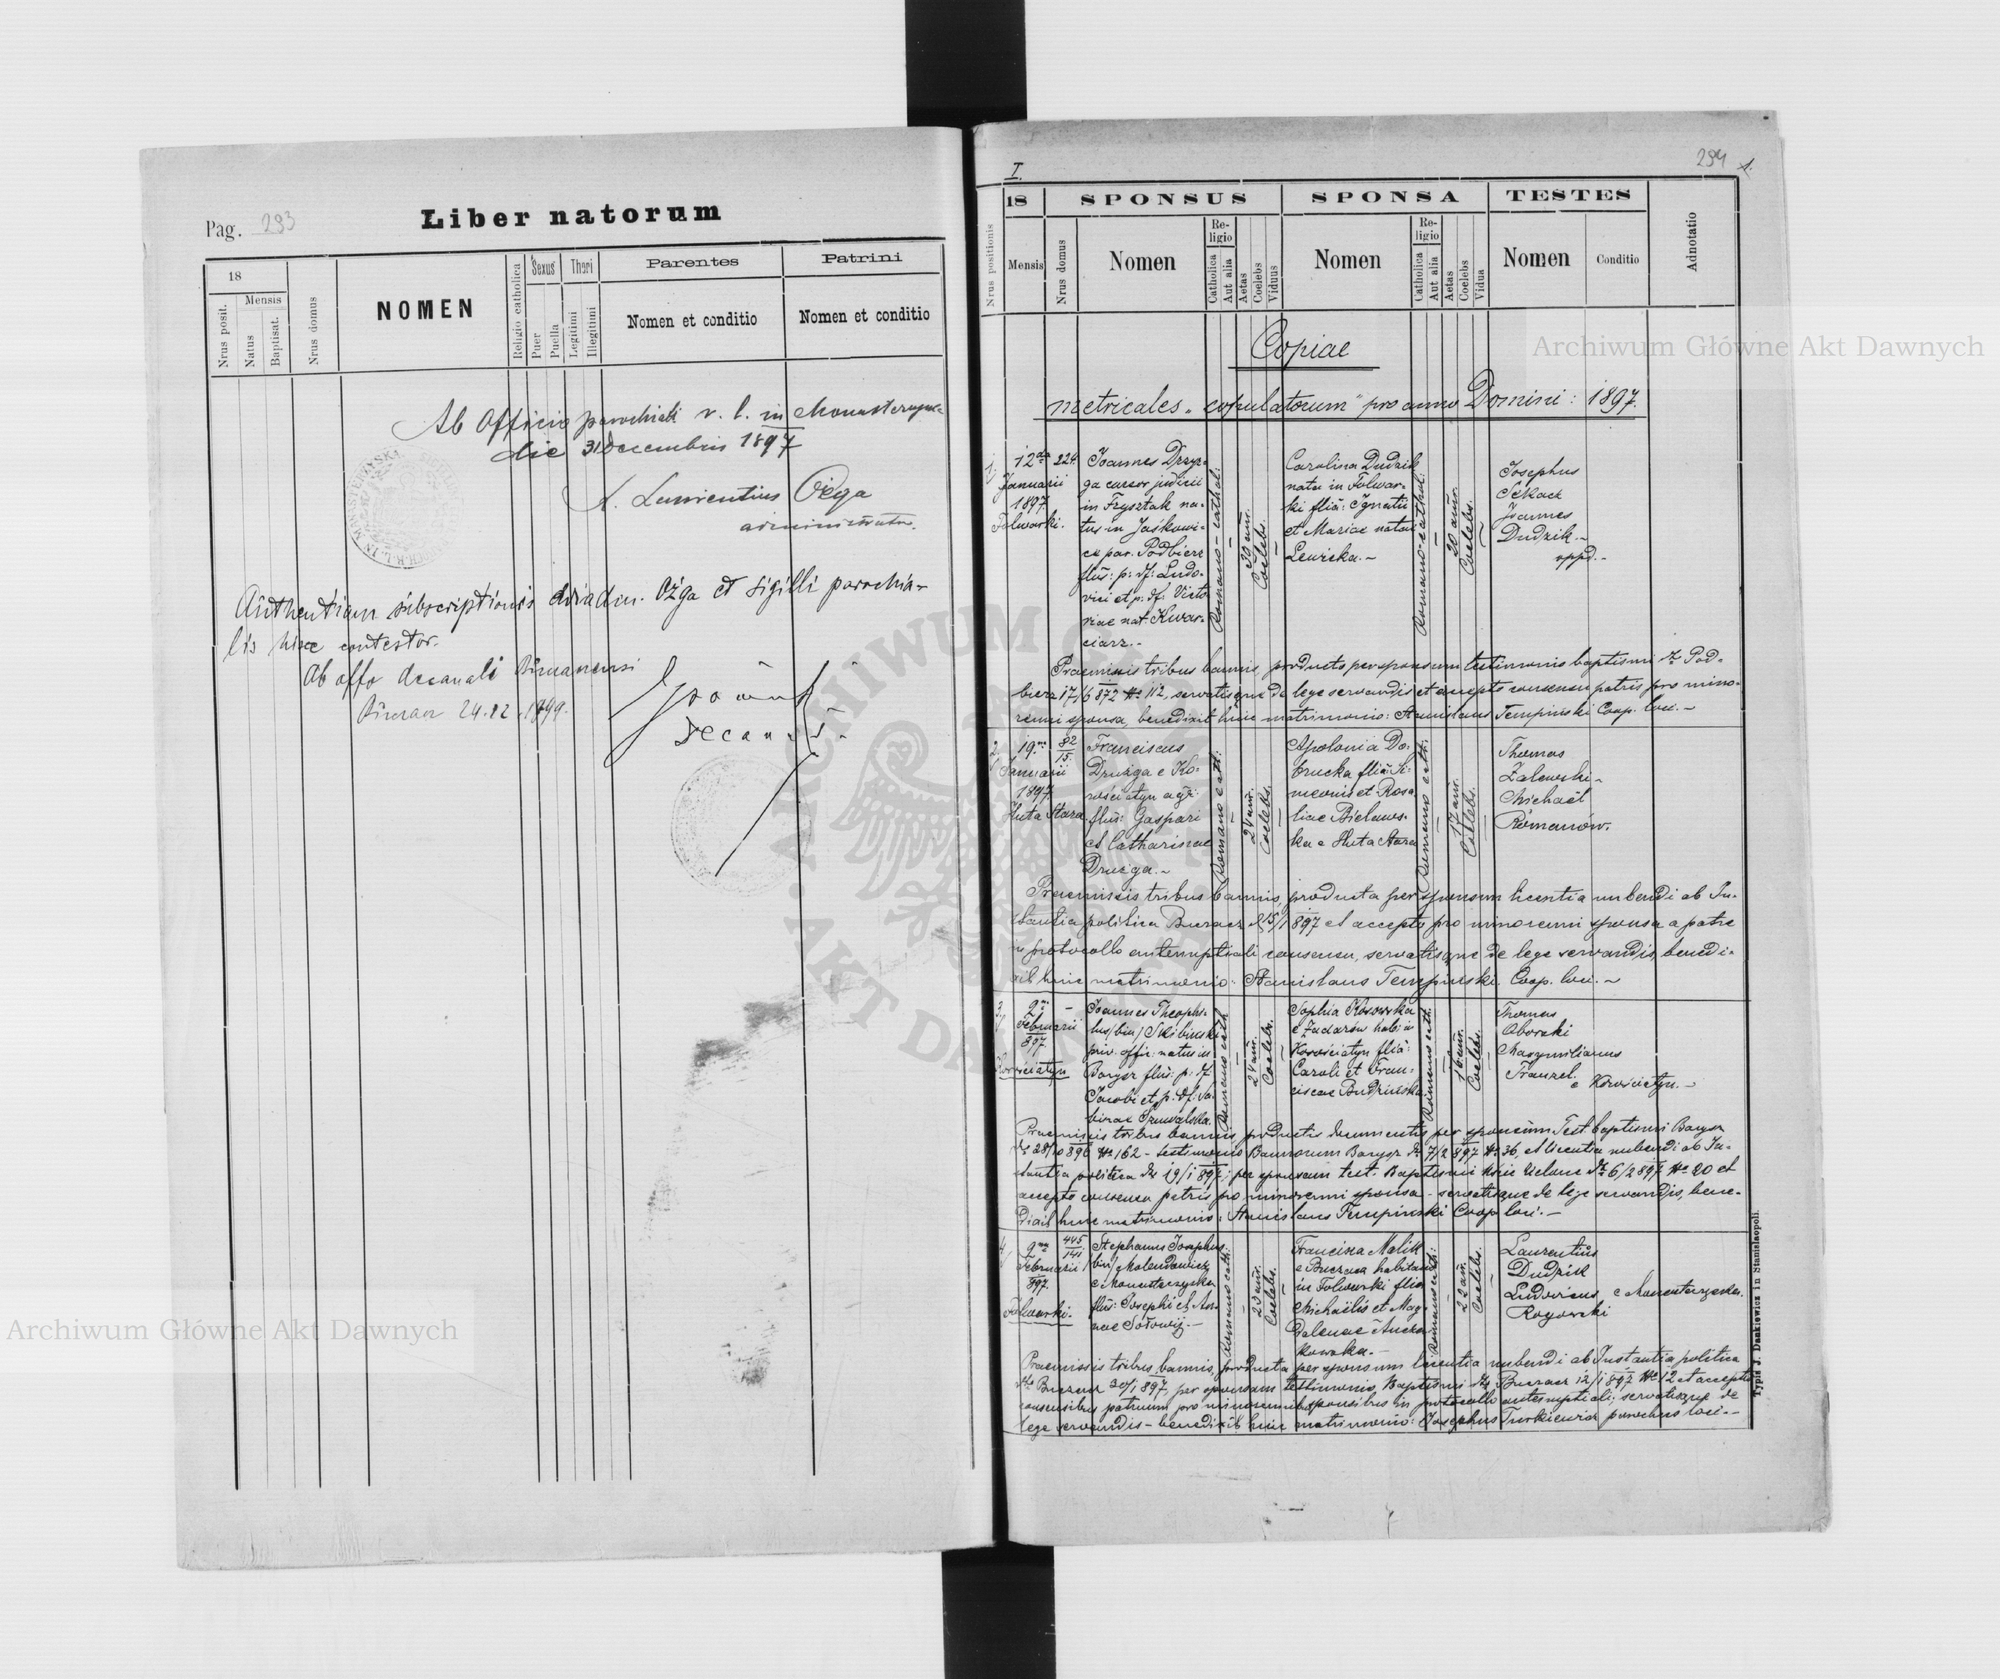 Pag. 293
Liber natorum
18
Mensis
Nrus posit.
Natus
Baptisat.
Nrus domus
NOMEN
Religio catholica
Sexus
Puer
Puella
Thori
Legitimi
Illegitimi
Parentes
Nomen et conditio
Patrini
Nomen et conditio
Ab Officio parochiali r. l. in
die 31 Decembris 1897
Laurentius Ożga
administrator.
Authentiam subscriptionis Ożga et sigilli parochia-
lis hisce contestor.
Ab offo decanali
24.12.1899.
Decanus
I.
294
1.
Nrus positionis
18
Mensis
Nrus domus
SPONSUS
Nomen
Re-
ligio
Catholica
Aut alia
Aetas
Coelebs
Viduus
SPONSA
Nomen
Re-
ligio
Catholica
Aut alia
Aetas
Coelebs
Vidua
TESTES
Nomen
Conditio
Adnotatio
Copiae
metricales "copulatorum" pro anno Domini: 1897.
1.
12
Januarii
1897.
Folwarki.
224.
Joannes Drzyz-
ga cursor judicii
in Frysztak na-
tus in Jaśkowi-
ce par. Podbierz
flüs: p: df: Ludo-
vici et p. df: Victo-
riae nat. Kwar-
ciarz.-
Romano-cathol:
30 ann.
Coelebs.
Carolina Dudzik
nata in Folwar-
ki flia: Ignatii
et Mariae natae
Lewicka.-
Romano-cathol:
20 ann.
Coelebs.
Josephus
Sekacz
Joannes
Dudzik.-
oppd.-
Praemissis tribus bannis, producto per sponsum testimonio baptismi Pod-
bierz 17/6 872 No 112, servatisque de lege servandis et accepto consensu patris pro mino-
renni sponsa, benedixit huic matrimonio: Stanislaus Tempinski Coop. loci.-
2.
19
Januarii
1897.
Huta Stara
82
15.
Franciscus
Drużga e Ko-
rościatyn
flüs: Gaspari
et Catharinae
Drużga.-
Romano cath:
Coelebs.
Apolonia Do-
brucka flia: Si-
meonis et Rosa-
liae Bielaws-
ka e Huta Stara
Romano cath:
17 ann.
Coelebs.
Thomas
Zalewski-
Michaël
Romanów.
Praemissis tribus bannis, producta per sponsum licentia nubendi ab In-
stantia politica Buczacz 15/1 897 et accepto pro minorenni sponsa a patre
in protocollo antenuptiali consensu, servatisque de lege servandis, benedi-
xit huic matrimonio: Stanislaus Tempinski. Coop. loci.-
3.
9
Februarii
897.
Korościatyn
Joannes Theophi-
lus /bin/ Skibinski
priv. offic: natus in
Barysz flüs: p: df.
Jacobi et p. df. Sa-
binae
Romano cath
Coelebs.
Sophia Kosowska
e Zadarów hab: in
Korościatyn flia:
Caroli et Fran-
ciscae Budzińska.
Romano cath.
16 ann.
Coelebs.
Thomas
Oborski
Maxymilianus
Franzel.
e Korościatyn.-
Praemissis tribus bannis, productis documentis per sponsum: Test. baptismi Barysz
28/10 896 No 162 - testimonio Bannorum Barysz 7/2 897 No 36, et licentia nubendi ab In-
stantia politica 19/1 897; per sponsam test. Baptismi Uście Zielone 6/2 897 No 20 et
accepto consensu patris pro minorenni sponsa - servatisque de lege servandis, bene-
dixit huic matrimonio: Stanislaus Tempinski Coop loci.-
4.
9
Februarii
897.
Folwarki.
445
141
Stephanus Josephus
/bin/ Molendowicz
e Monasterzyska
flüs: Josephi et An-
nae Sołowij.-
Romano cath:
23 ann.
Coelebs.
Francisca Malik
e Buczacz habitans
in Folwarki flia
Michaëlis et Mag-
dalenae
Romano cath:
22 ann.
Coelebs.
Laurentius
Dudzik
Ludovicus
Rogowski
e Monasterzyska.
Praemissis tribus bannis, producta per sponsum licentia nubendi ab Instantia politica
Buczacz 30/1 897, per sponsam testimonio Baptismi Buczacz 12/1 897 No 12 et acceptis
consensibus patruum pro minorennibus sponsibus in protocollo antenuptiali; servatisque de
lege servandis - benedixit huic matrimonio: Josephus Turkiewicz parochus loci.-
Typis J. Dankiewicz in Stanislaopoli.
Archiwum Główne Akt Dawnych
Archiwum Główne Akt Dawnych